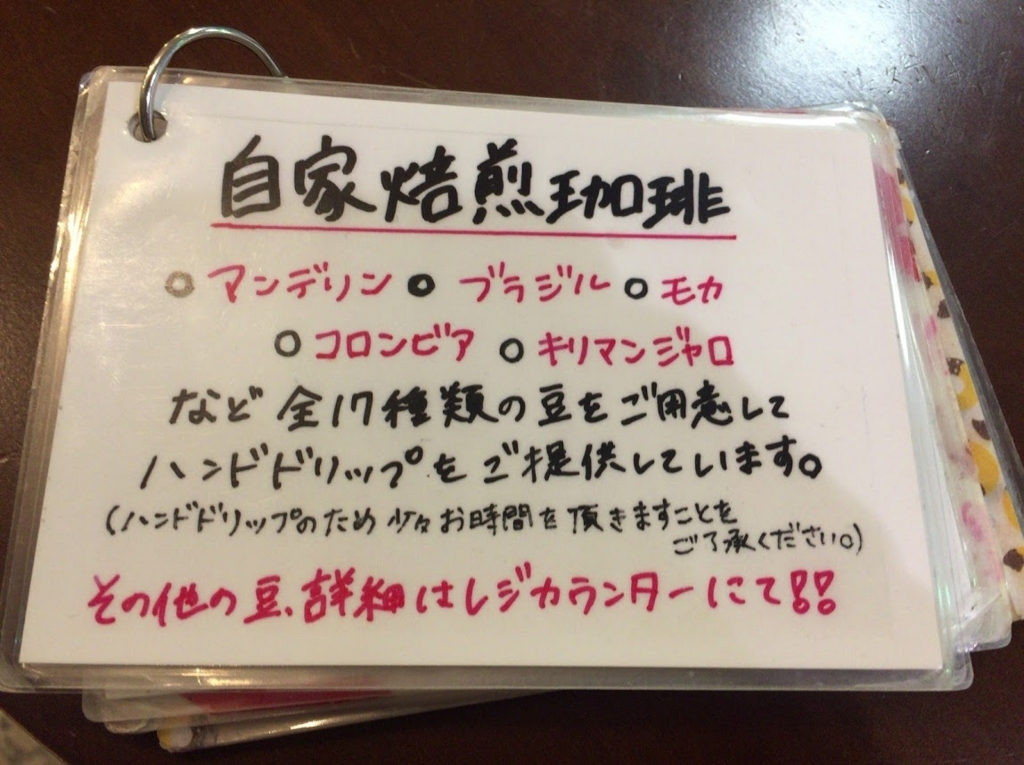 自家焙煎珈琲
○ マンデリン ○ ブラジル ○ モカ
○ コロンビア ○ キリマンジャロ
など 全17種類の豆をご用意して
ハンドドリップをご提供しています。
(ハンドドリップのため少々お時間を頂きますことを
ご了承ください。)
その他の豆、詳細はレジカウンターにて!!